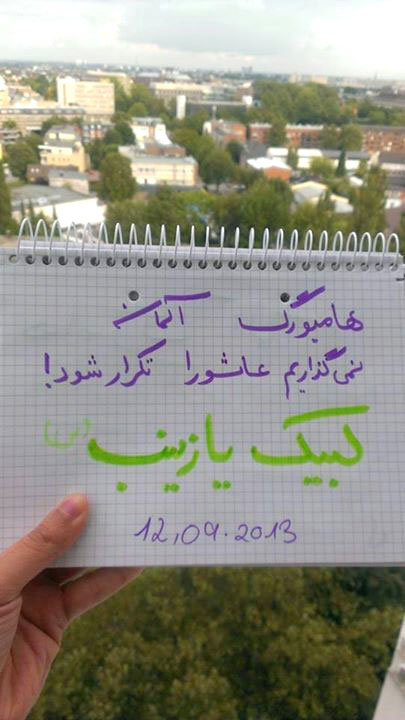 هامبورگ آلمان
نمی‌گذاریم عاشورا تکرار شود!
لبیک یا زینب (س)
12,09.2013